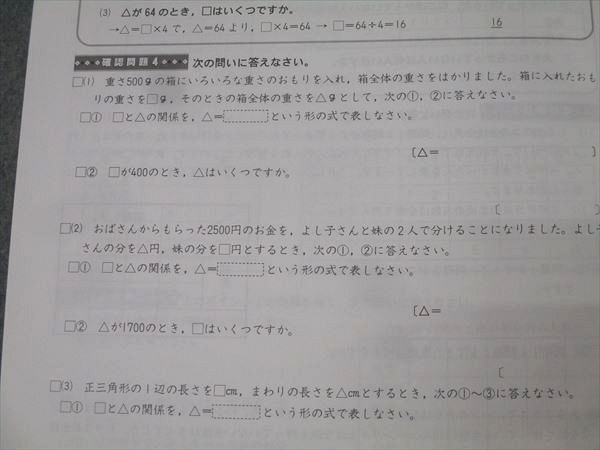 (3) △が64のとき，□はいくつですか。
→△＝□×4で，△＝64より，□×4＝64 → □＝64÷4＝16
16
確認問題4 次の問いに答えなさい。
□(1) 重さ500gの箱にいろいろな重さのおもりを入れ，箱全体の重さをはかりました。箱に入れたおも
りの重さを□g，そのときの箱全体の重さを△gとして，次の①，②に答えなさい。
□① □と△の関係を，△＝　　　という形の式で表しなさい。
〔△＝　　　〕
□② □が400のとき，△はいくつですか。
〔　　　〕
□(2) おばさんからもらった2500円のお金を，よし子さんと妹の2人で分けることになりました。よし子
さんの分を△円，妹の分を□円とするとき，次の①，②に答えなさい。
□① □と△の関係を，△＝　　　という形の式で表しなさい。
〔△＝
□② △が1700のとき，□はいくつですか。
〔
□(3) 正三角形の1辺の長さを□cm，まわりの長さを△cmとするとき，次の①〜③に答えなさい。
□① □と△の関係を，△＝　　　という形の式で表しなさい。